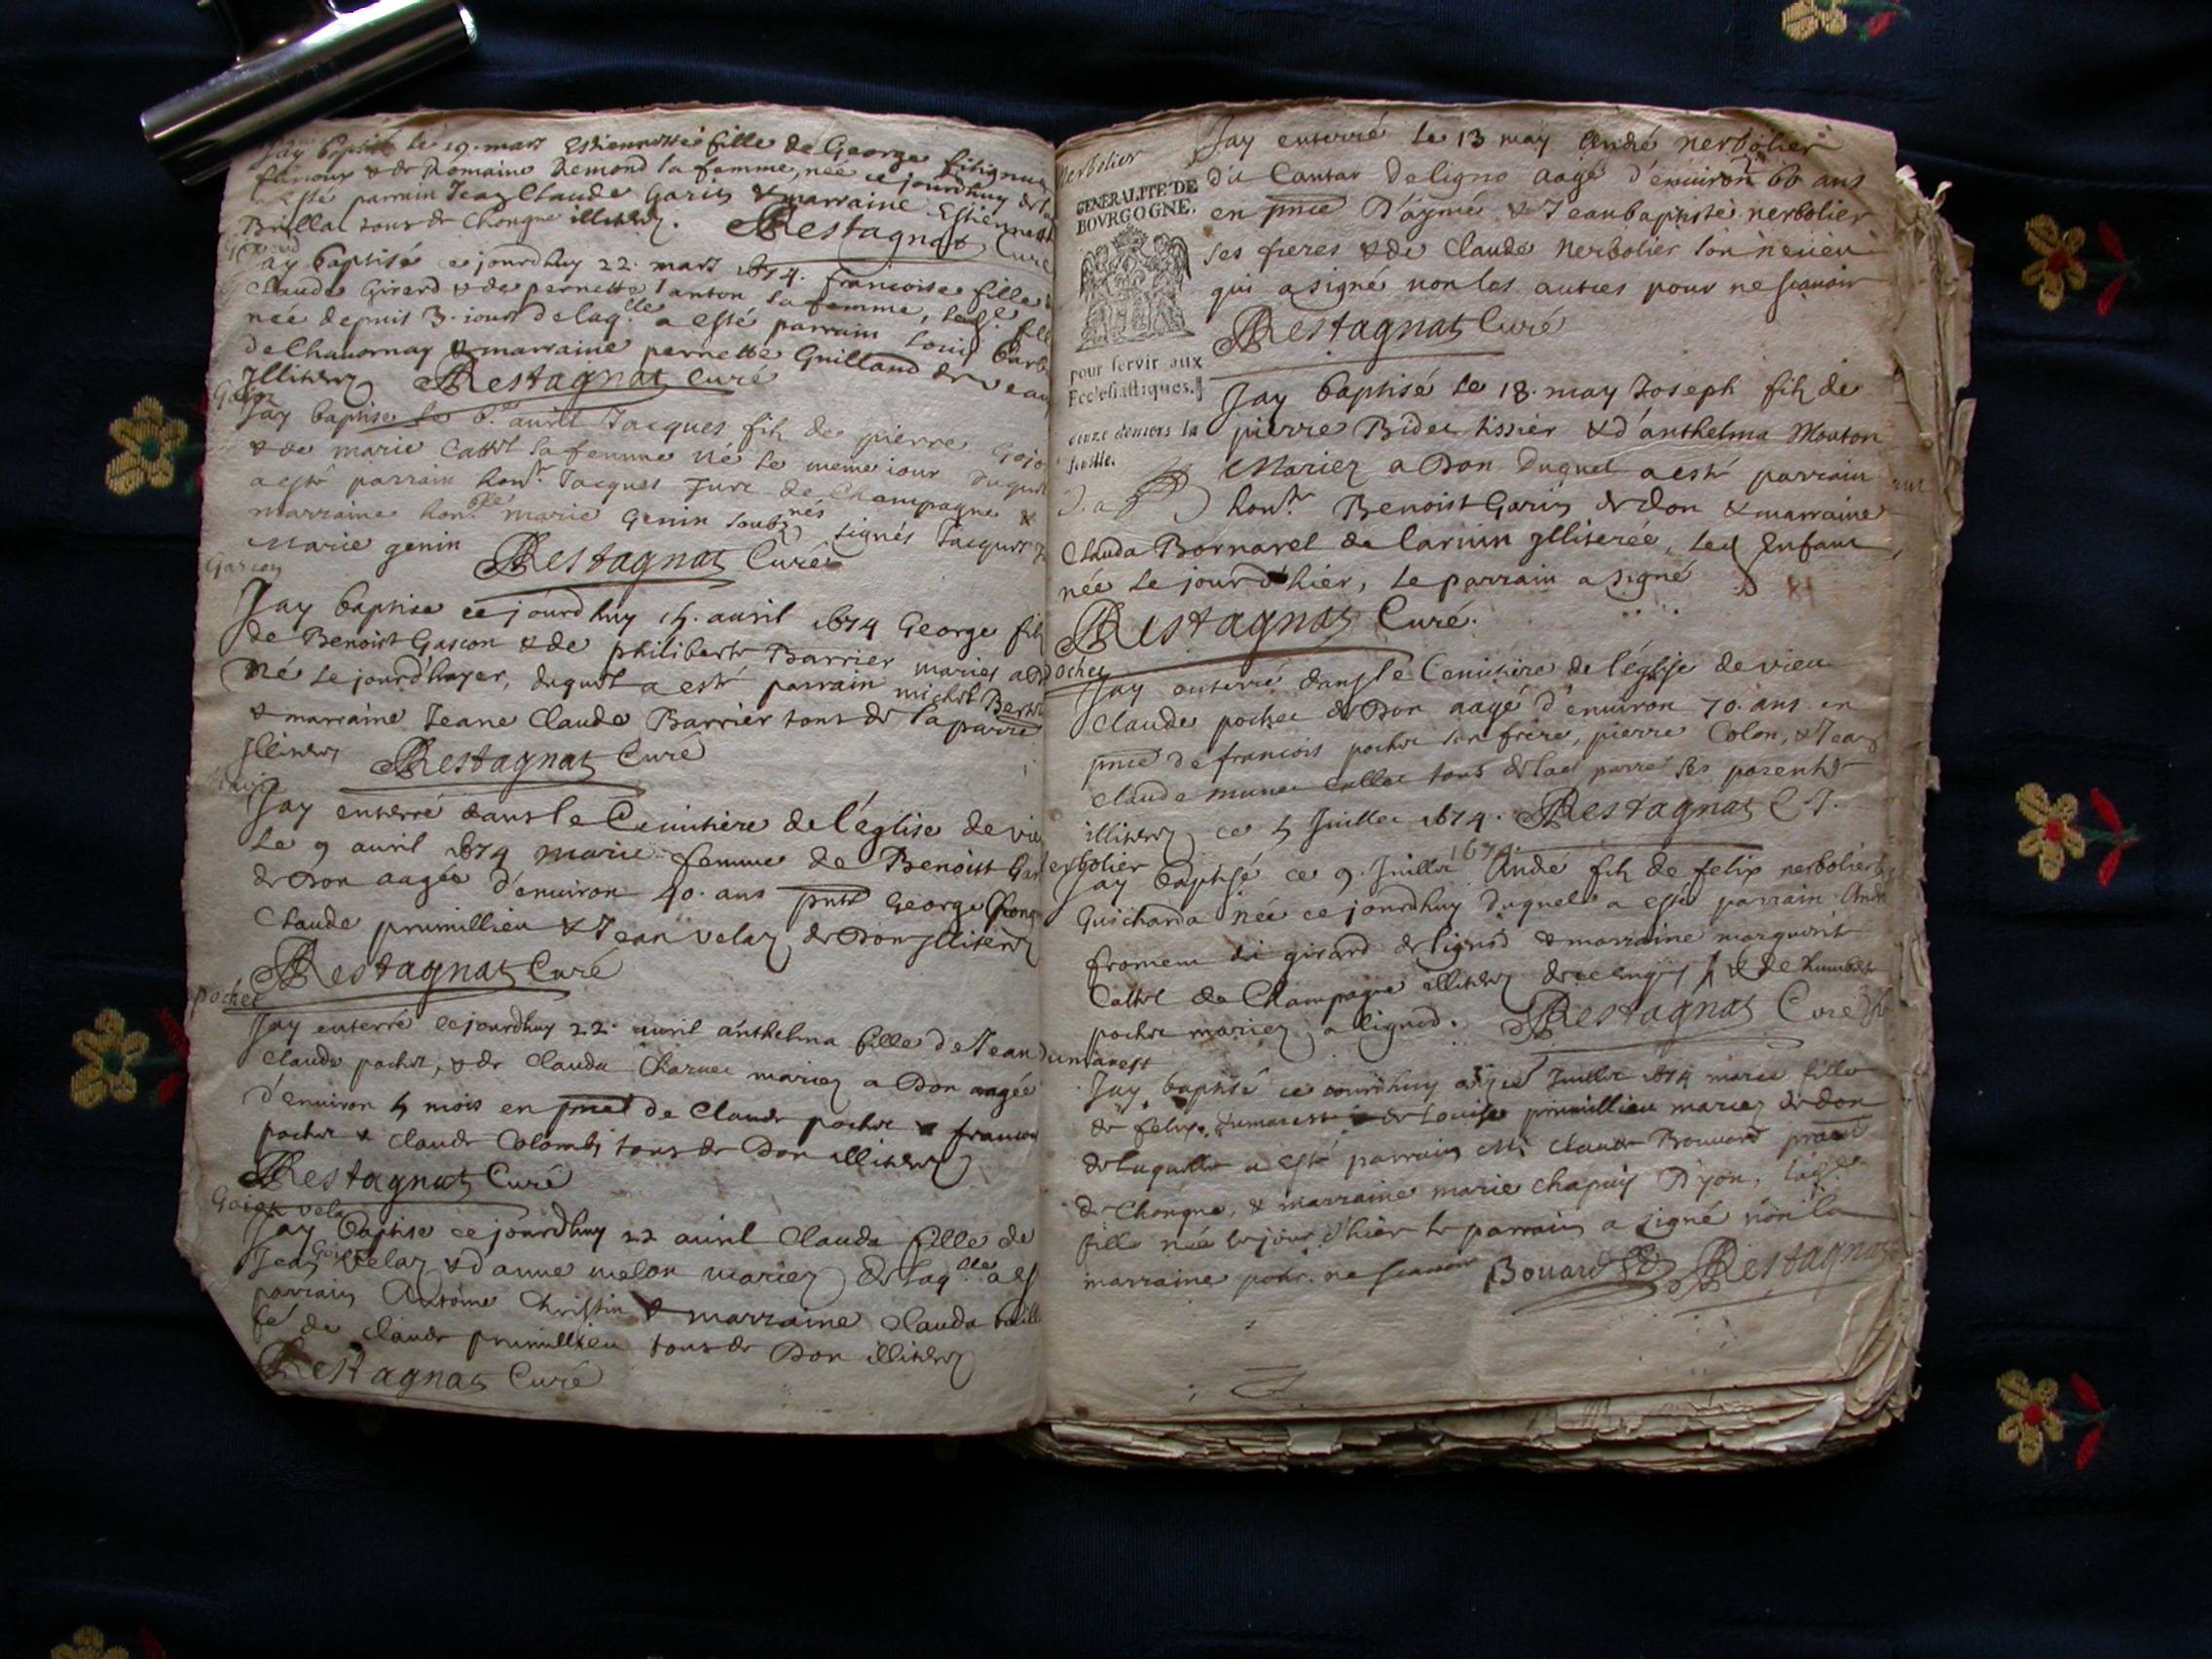 Jay baptisé le 19. mars Estiennette fille de George
& de Romaine Remond sa femme, née ce jourdhuy
esté parrain Jean Claude Garin & marraine Estiennette
Brillat tous de Chongne illiterez. Restagnat Curé
Jay baptisé ce jourdhuy 22. mars 1674. francoise fille
Claude Girard & de pernette Tanton sa femme,
née depuis 3. jours de laq.lle a esté parrain Louis
de Chavornay & marraine pernette Guilland de
Illiterez Restagnat Curé
Gojoz
Jay baptise le 6.e avril Jacques filz de pierre Gojo
& de marie Cattet sa femme né le meme iour duquel
a esté parrain hon.te Jacques Jure de Champagne &
marraine hon.ble marie Genin soubz nés signés Jacques
Marie genin Restagnat Curé
Gascon
Jay baptise ce jourdhuy 4. avril 1674 George filz
de Benoist Gascon & de philiberte Barrier mariez a
né le jourd'hyer, duquel a esté parrain michel
& marraine Jeane Claude Barrier tous de la parre
Illiterez Restagnat Curé
Jay enterré dans le Cemitiere de l'église de vieu
Le 9 avril 1674 marie femme de Benoist
de Don aagée d'environ 40. ans pnts George
Claude prumillieu & Jean velaz de Don Illiterez
Restagnat Curé
pochet
Jay enterré cejourdhuy 22. avril anthelma fille de Jean
Claude pochet, & de Clauda Charvet mariez a Don aagée
d'environ 4 mois en pnce de Claude pochet & francois
pochet & Claude Colomb tous de Don illiterez
Restagnat Curé
Gojoz velaz
Jay baptise ce jourdhuy 22 avril Clauda fille de
Jean velaz & d'anne melon mariez de laq.lle a est
parrain Antoine Christin & marraine Clauda
fé de Claude prumillieu tous de Don illiterez
Restagnat Curé
Nerbolier
Jay enterré le 13 may André nerbolier
du Cantar de ligno aagé d'environ 60 ans
en pnce d'aymé & Jean baptiste nerbolier
ses freres & de Claude Nerbolier son neveu
qui a signé non les autres pour ne scavoir
Restagnat Curé
GENERALITE DE
BOVRGOGNE.
pour servir aux
Ecclesiastiques.
deniers la
feuille.
Jay baptisé le 18. may Joseph filz de
pierre Bidet tissier & d'anthelma Mouton
Mariez a Don duquel a esté parrain
hon.te Benoist Garin de don & marraine
Clauda Bornarel de Larnin Illiterée, led Enfant
née le jour d'hier, le parrain a signé
Restagnat Curé.
ochet
Jay enterré dans le Cemitiere de l'église de vieu
Claude pochet de Don aagé d'environ 70. ans en
pnce de francois pochet son frere, pierre Colon, & Jean
Claude munet tous de lad parre ses parents
illiterez ce 4 Juillet 1674. Restagnat C.
erbolier
Jay baptisé ce 9. Juillet 1674. André filz de felix nerbolier
Guicharda née ce jourdhuy duquel a esté parrain André
froment di girard de lignod & marraine marguerite
Cattet de Champagne illiterez & de humberte
pochet mariez a lignod. Restagnat Curé
dumarest
Jay baptisé ce jourdhuy Juillet 1674 marie fille
de felix dumarest & de Louise prumillieu mariez de don
de laquelle a esté parrain M. Claude Bouvard
de Chongne, & marraine marie chapuis D'yon, laq.lle
fille née le jour d'hier le parrain a signé non la
marraine pour ne scavoir Bouard Restagnat